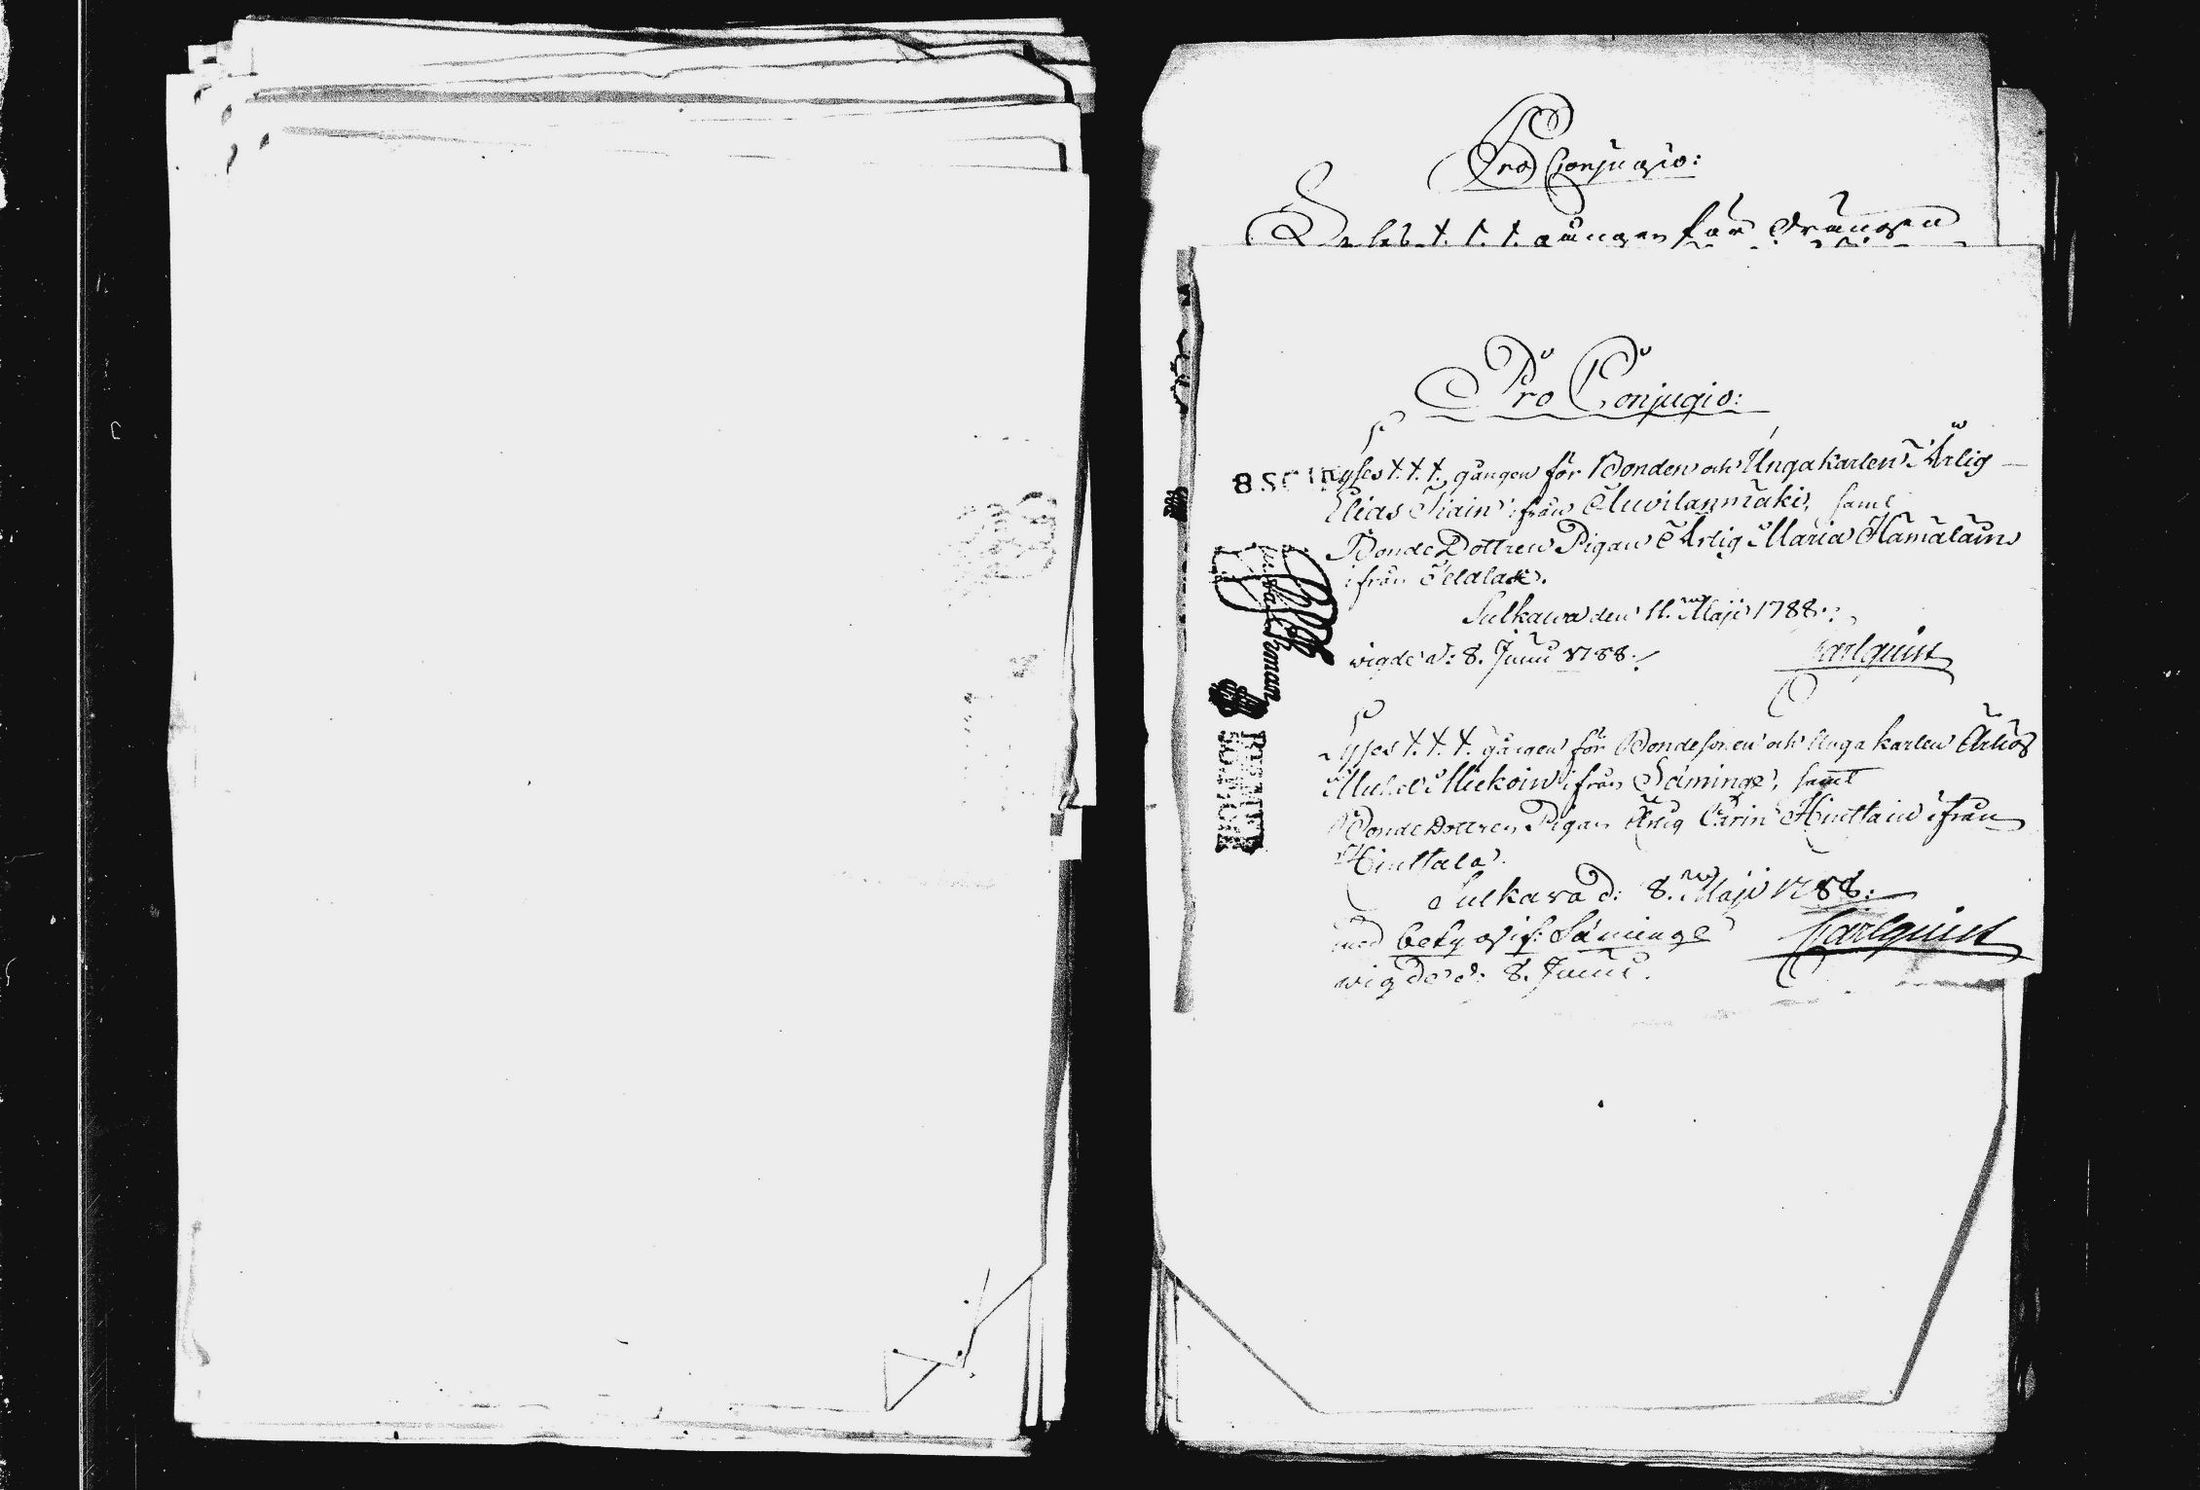 Pro Conjugio:
t. t. t. gången för Drängen
Pro Conjugio:
Lyses t. t. t. gången för Bonden och Ungakarlen Ärlig
Elias Tiain ifrån Auvilanmäki, samt
BondeDottren Pigan Ärlig Maria Hämäläin
ifrån Telala.
Sulkawa den 11. Maji 1788.
wigde d: 8. Junii 1788.
Carlquist
Lyses t. t. t. gången för Bondesonen och Unga karlen Ärlig
Michel Mickoin ifrån Säminge, samt
BondeDottren Pigan Ärlig Carin Hinttain ifrån
Hinttala.
Sulkava d: 8. Maji 1788.
med betyg if: Säminge
Carlquist
wigde d: 8. Junii.
8 SC